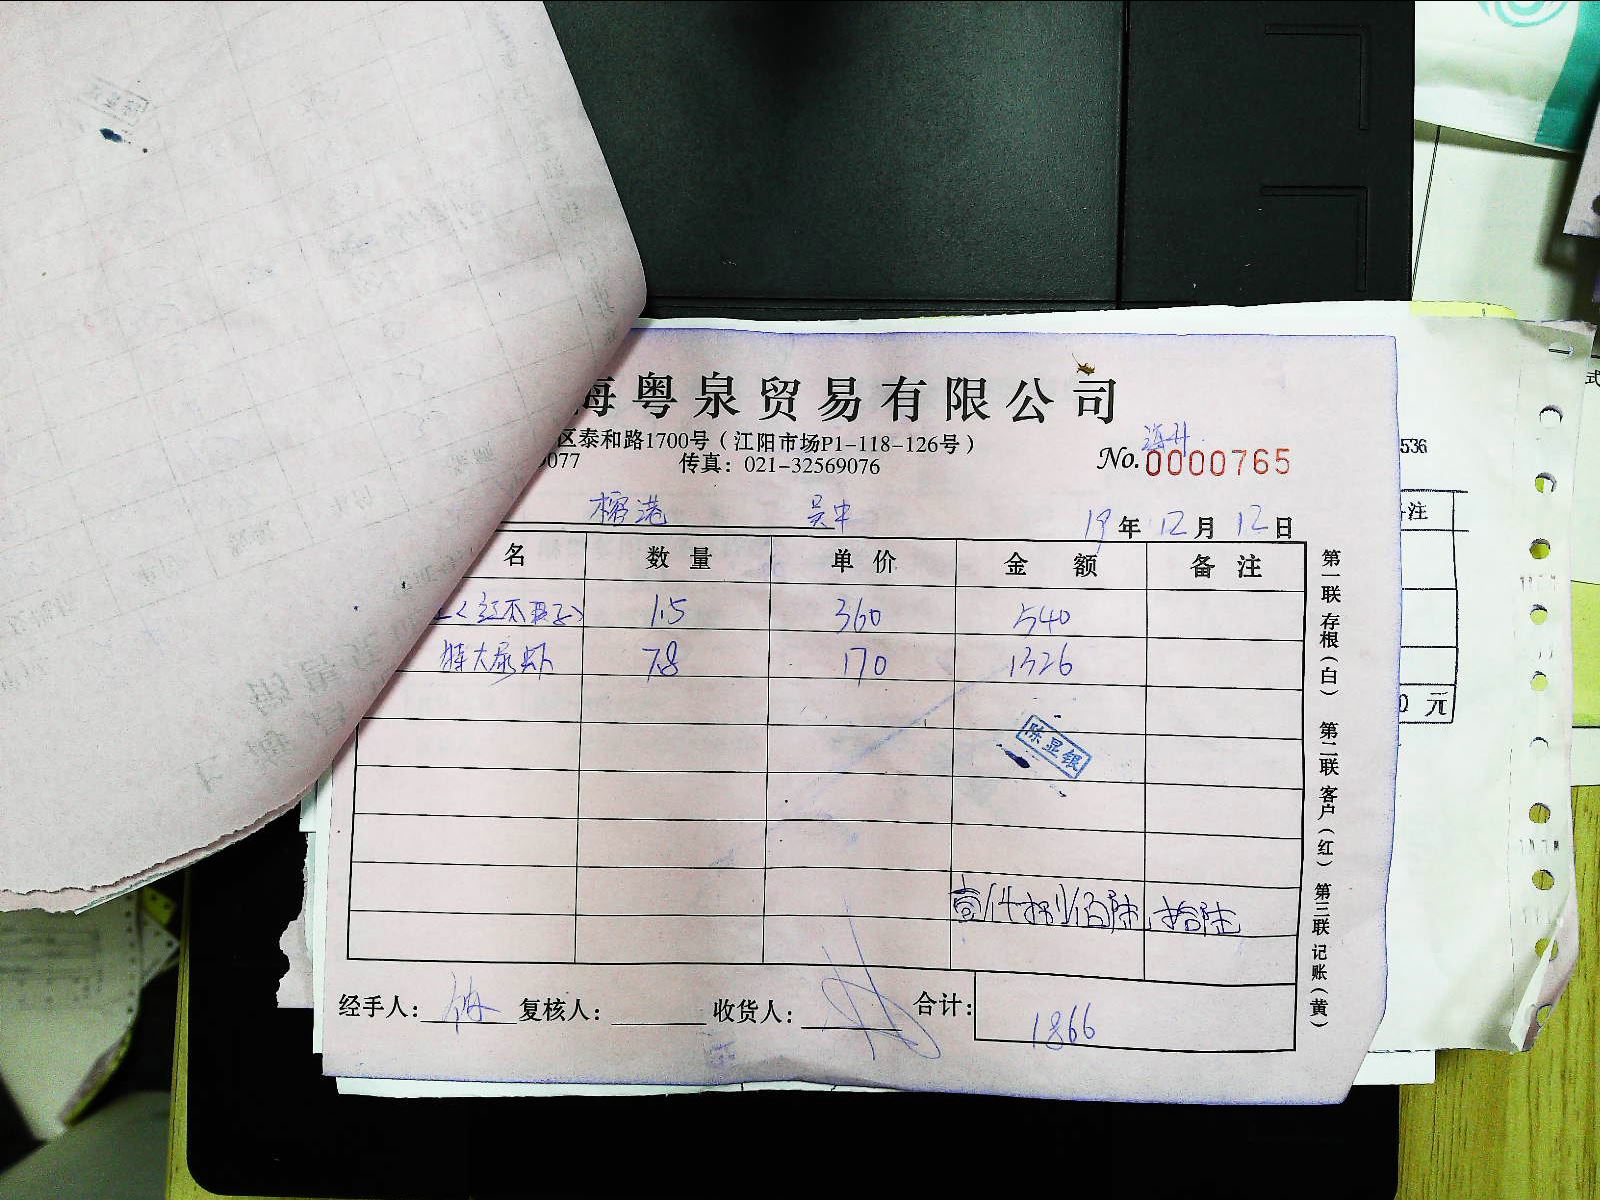 海粤泉贸易有限公司
区泰和路1700号（江阳市场P1-118-126号）
0077 传真：021-32569076
海升
No. 0000765
榕港 吴中 19年12月12日
名 数量 单价 金额 备注
1.5 360 540
特大尿虾 7.8 170 1326
陈显银
壹仟捌佰陆拾陆
经手人： 复核人： 收货人： 合计： 1866
第一联 存根（白） 第二联 客户（红） 第三联 记账（黄）
536
注
0 元
式